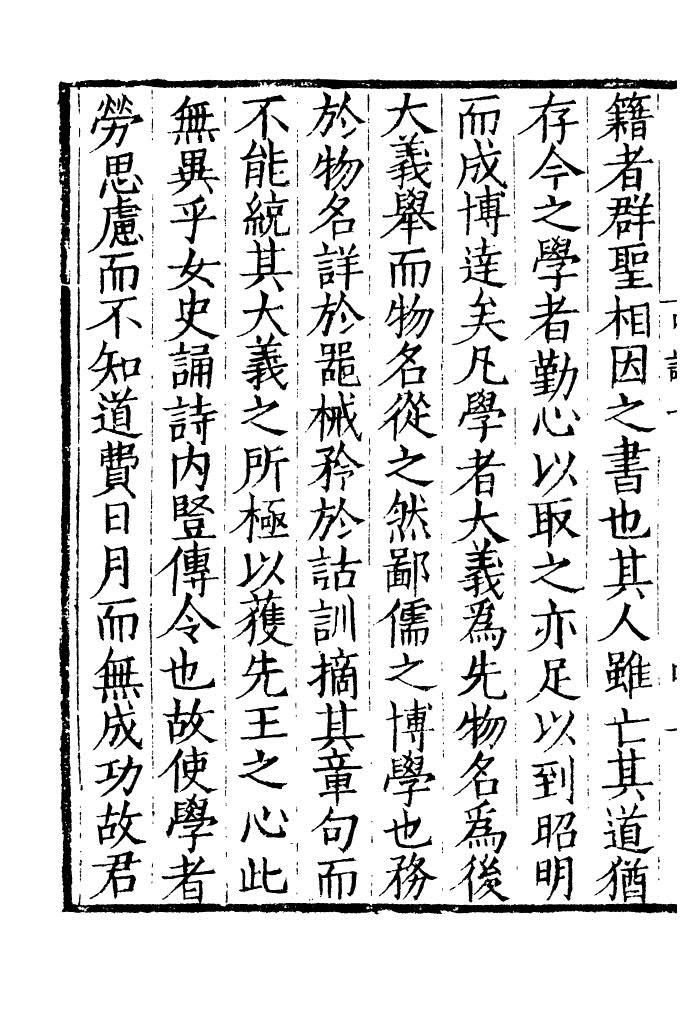 籍者群聖相因之書也其人雖亡其道猶
存今之學者勤心以取之亦足以到昭明
而成博達矣凡學者大義爲先物名爲後
大義舉而物名從之然鄙儒之博學也務
於物名詳於噐械矜於詁訓摘其章句而
不能統其大義之所極以獲先王之心此
無異乎女史誦詩内豎傳令也故使學者
勞思慮而不知道費日月而無成功故君